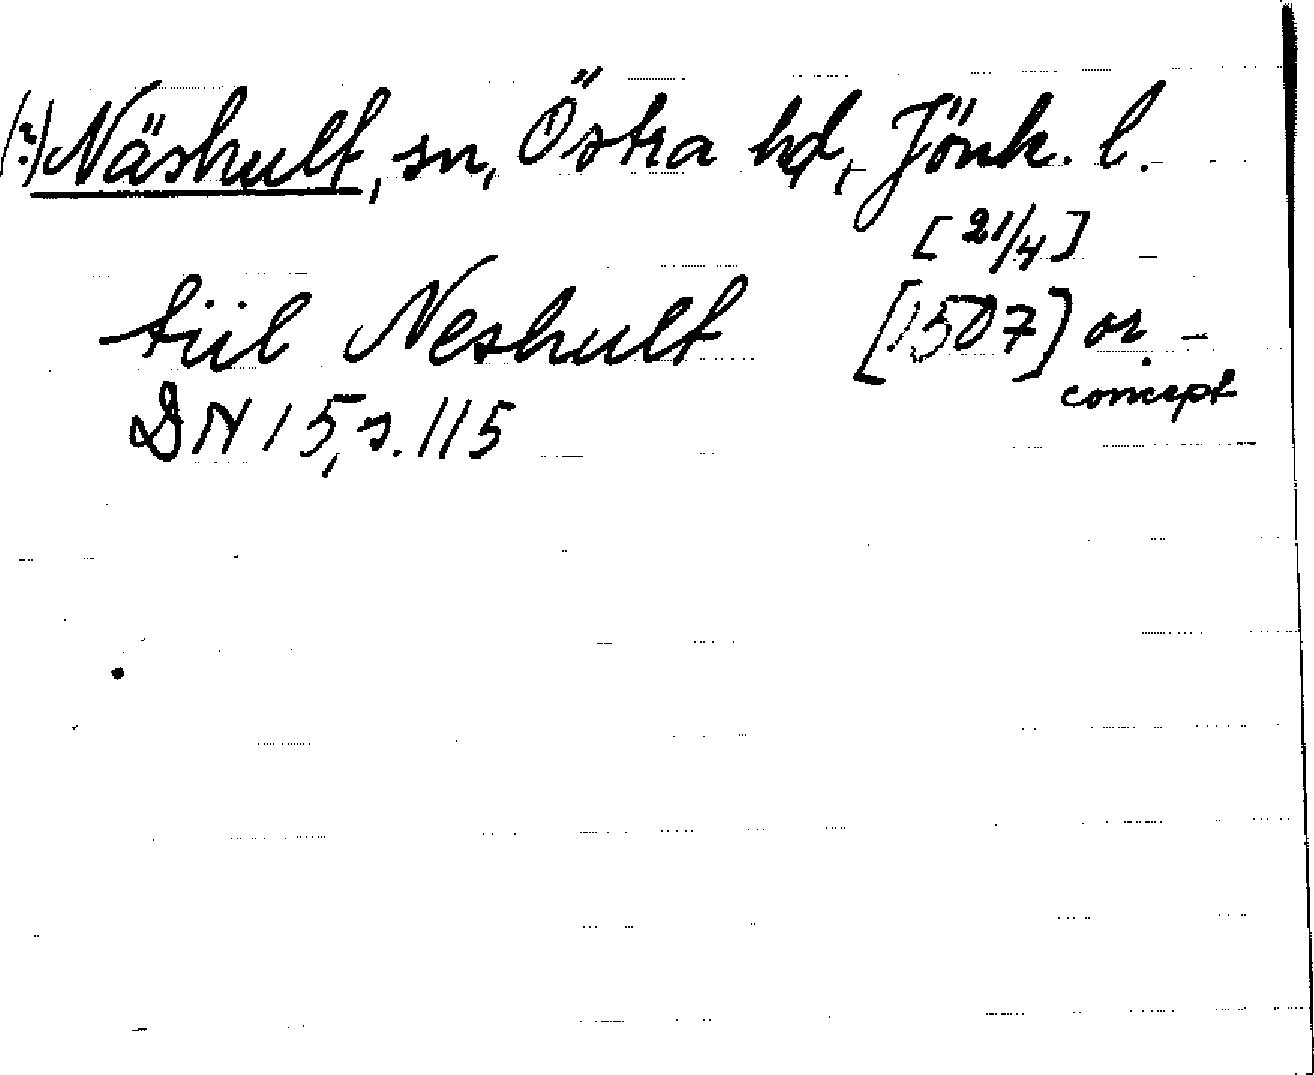 (?) Näshult, sn, Östra hd, Jönk. l.
[21/4]
tiil Neshult [1507] or. -
concept
DN 15, s. 115